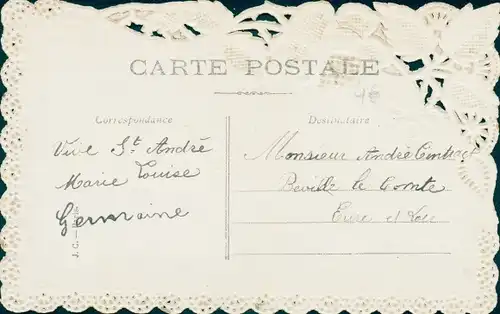 CARTE POSTALE
4€
Correspondance
Destinataire
Vive St André
Marie Louise
Germaine
Monsieur André
Béville le Comte
Eure et Loir
J. C. — Paris